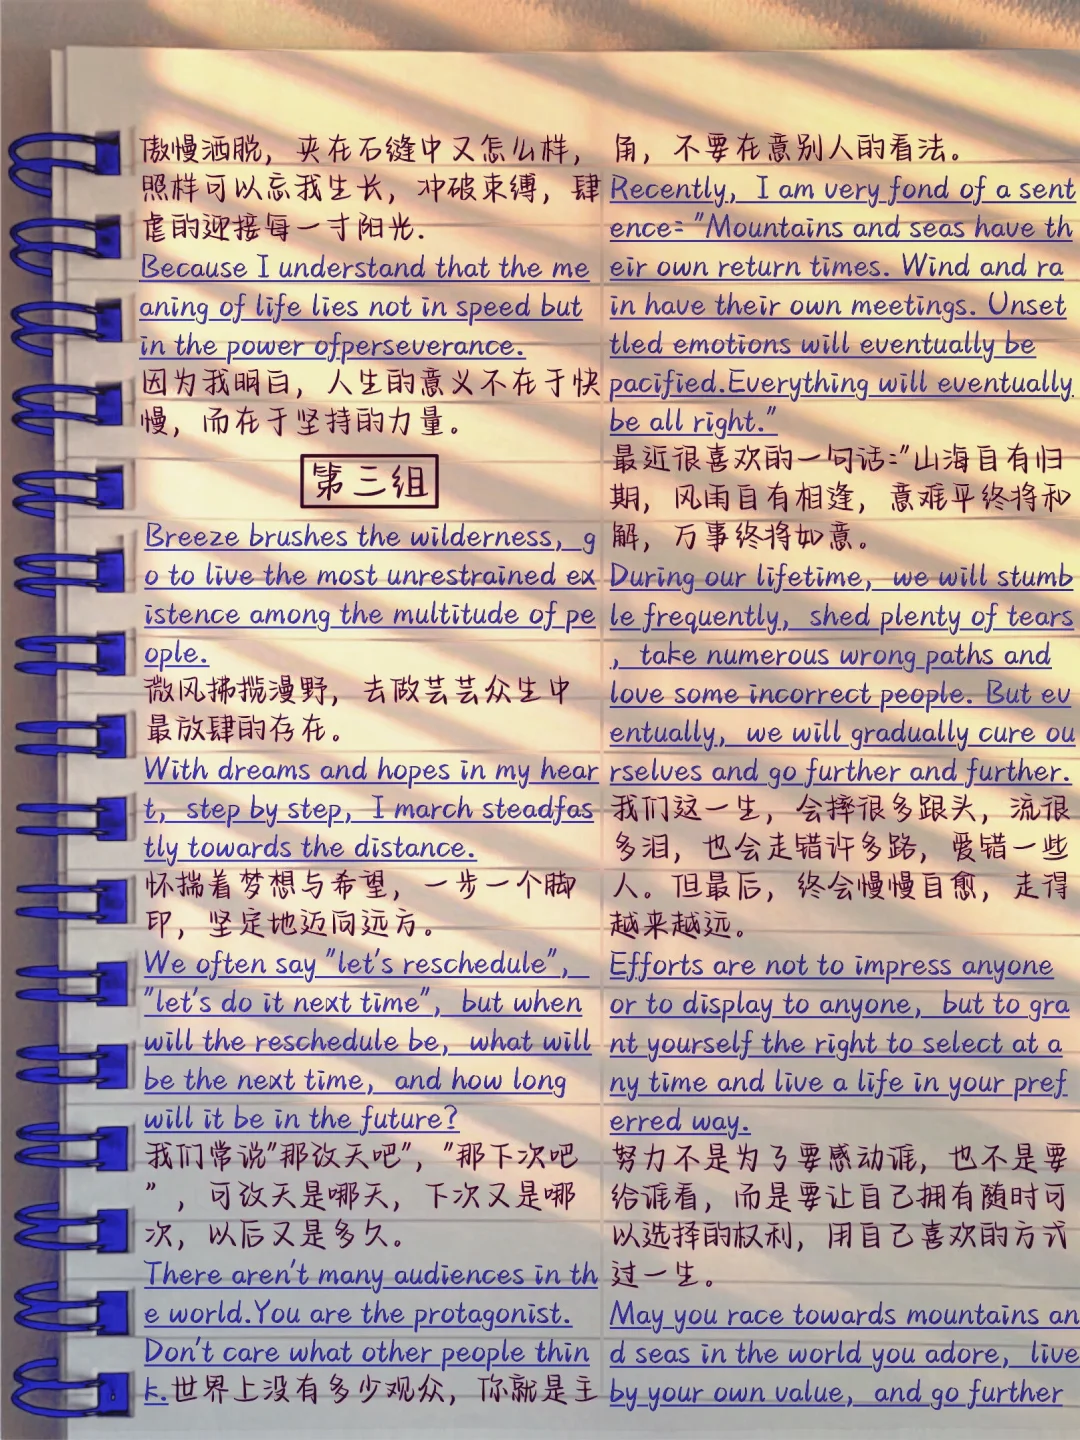 傲慢洒脱，夹在石缝中又怎么样，
照样可以忘我生长，冲破束缚，肆
虐的迎接每一寸阳光.
Because I understand that the me
aning of life lies not in speed but
in the power ofperseverance.
因为我明白，人生的意义不在于快
慢，而在于坚持的力量。
第三组
Breeze brushes the wilderness, g
o to live the most unrestrained ex
istence among the multitude of pe
ople.
微风拂揽漫野，去做芸芸众生中
最放肆的存在。
With dreams and hopes in my hear
t, step by step, I march steadfas
tly towards the distance.
怀揣着梦想与希望，一步一个脚
印，坚定地迈向远方。
We often say "let's reschedule",
"let's do it next time", but when
will the reschedule be, what will
be the next time, and how long
will it be in the future?
我们常说"那改天吧"，"那下次吧
"，可改天是哪天，下次又是哪
次，以后又是多久。
There aren't many audiences in th
e world.You are the protagonist.
Don't care what other people thin
k.世界上没有多少观众，你就是主
角，不要在意别人的看法。
Recently, I am very fond of a sent
ence: "Mountains and seas have th
eir own return times. Wind and ra
in have their own meetings. Unset
tled emotions will eventually be
pacified.Everything will eventually
be all right."
最近很喜欢的一句话:"山海自有归
期，风雨自有相逢，意难平终将和
解，万事终将如意。
During our lifetime, we will stumb
le frequently, shed plenty of tears
, take numerous wrong paths and
love some incorrect people. But ev
entually, we will gradually cure ou
rselves and go further and further.
我们这一生，会摔很多跟头，流很
多泪，也会走错许多路，爱错一些
人。但最后，终会慢慢自愈，走得
越来越远。
Efforts are not to impress anyone
or to display to anyone, but to gra
nt yourself the right to select at a
ny time and live a life in your pref
erred way.
努力不是为了要感动谁，也不是要
给谁看，而是要让自己拥有随时可
以选择的权利，用自己喜欢的方式
过一生。
May you race towards mountains an
d seas in the world you adore, live
by your own value, and go further